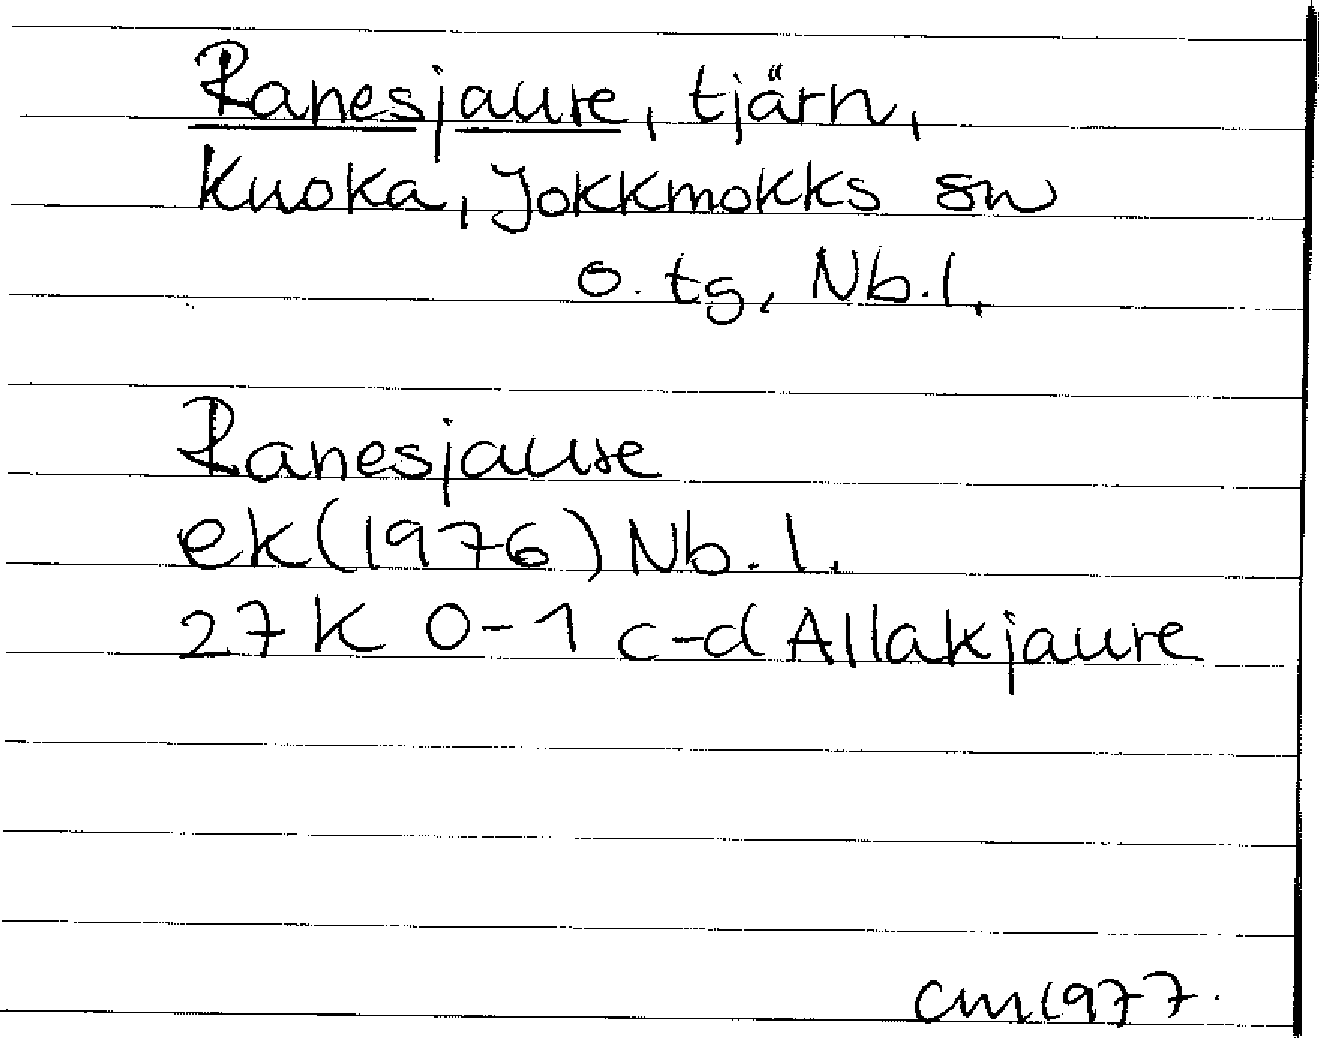 Ranesjaure, tjärn,
Kuoka, Jokkmokks sn
o. tg, Nb.l.
Ranesjaure
ek(1976) Nb.l.
27 K 0-1 c-d Allakjaure
CM 1977.